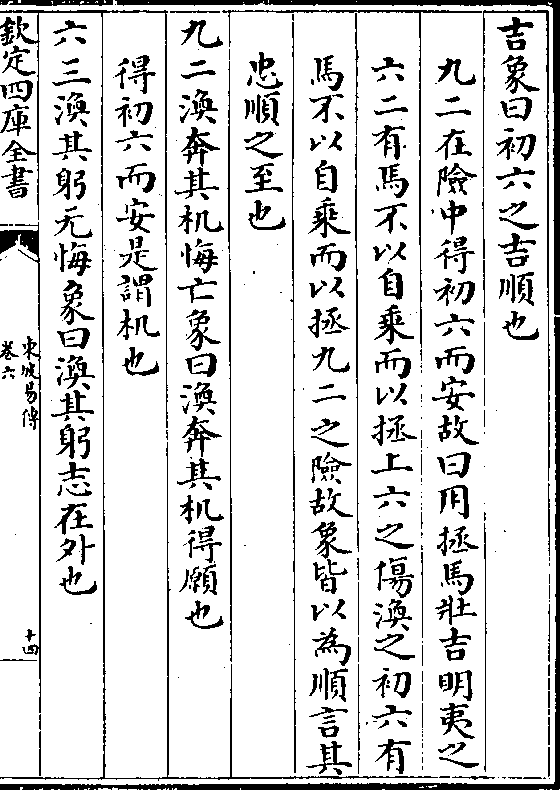 吉象曰初六之吉順也
九二在險中得初六而安故曰用拯馬壯吉明夷之
六二有馬不以自乘而以拯上六之傷渙之初六有
馬不以自乘而以拯九二之險故象皆以為順言其
忠順之至也
九二渙奔其机悔亡象曰渙奔其机得願也
得初六而安是謂机也
六三渙其躬无悔象曰渙其躬志在外也
欽定四庫全書
東坡易傳
卷六
十四